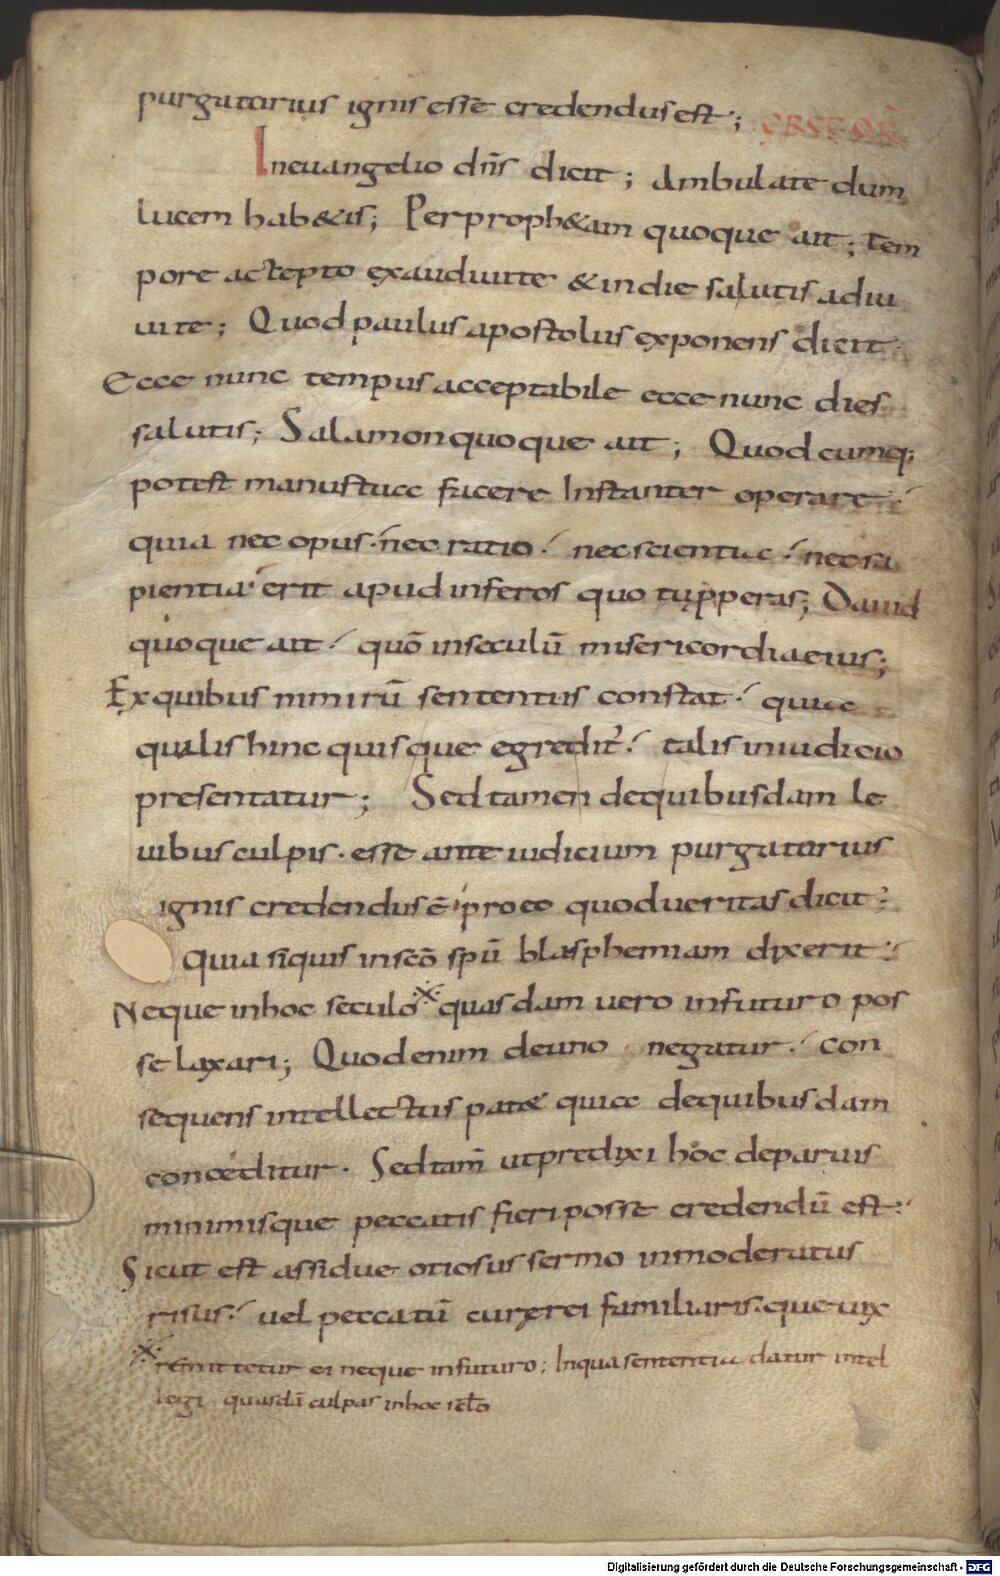 purgatorius ignis esse credendus est; GREGOR̄
In euangelio dn̄s dicit; Ambulate dum
lucem hab&is; Per proph&am quoque ait; tem
pore accepto exaudiui te & in die salutis adiu
ui te; Quod paulus apostolus exponens dicit
Ecce nunc tempus acceptabile ecce nunc dies
salutis; Salamon quoque ait; Quodcumq;
potest manus tua facere Instanter operare
quia nec opus. nec ratio. nec scientia. nec sa
pientia erit apud inferos quo tu pperas; Dauid
quoque ait. quō in seculū misericordia eius;
Ex quibus nimirū sententiis constat. quia
qualis hinc quisque egredit̄. talis in iudicio
presentatur; Sed tamen de quibusdam le
uibus culpis. esse ante iudicium purgatorius
ignis credendus ē pro eo quod ueritas dicit.
Quia siquis in sc̄o spū blasphemiam dixerit.
Neque in hoc seculo quasdam uero in futuro pos
se laxari; Quod enim de uno negatur. con
sequens intellectus pat& quia de quibusdam
conceditur. Sed tam̄ ut predixi hoc de paruis
minimisque peccatis fieri posse credendū est.
Sicut est assidue otiosus sermo inmoderatus
risus. uel peccatū curę rei familiaris. que uix
remittetur ei neque in futuro; In qua sententia datur intel
legi quasdā culpas in hoc sc̄lo
Digitalisierung gefördert durch die Deutsche Forschungsgemeinschaft - DFG